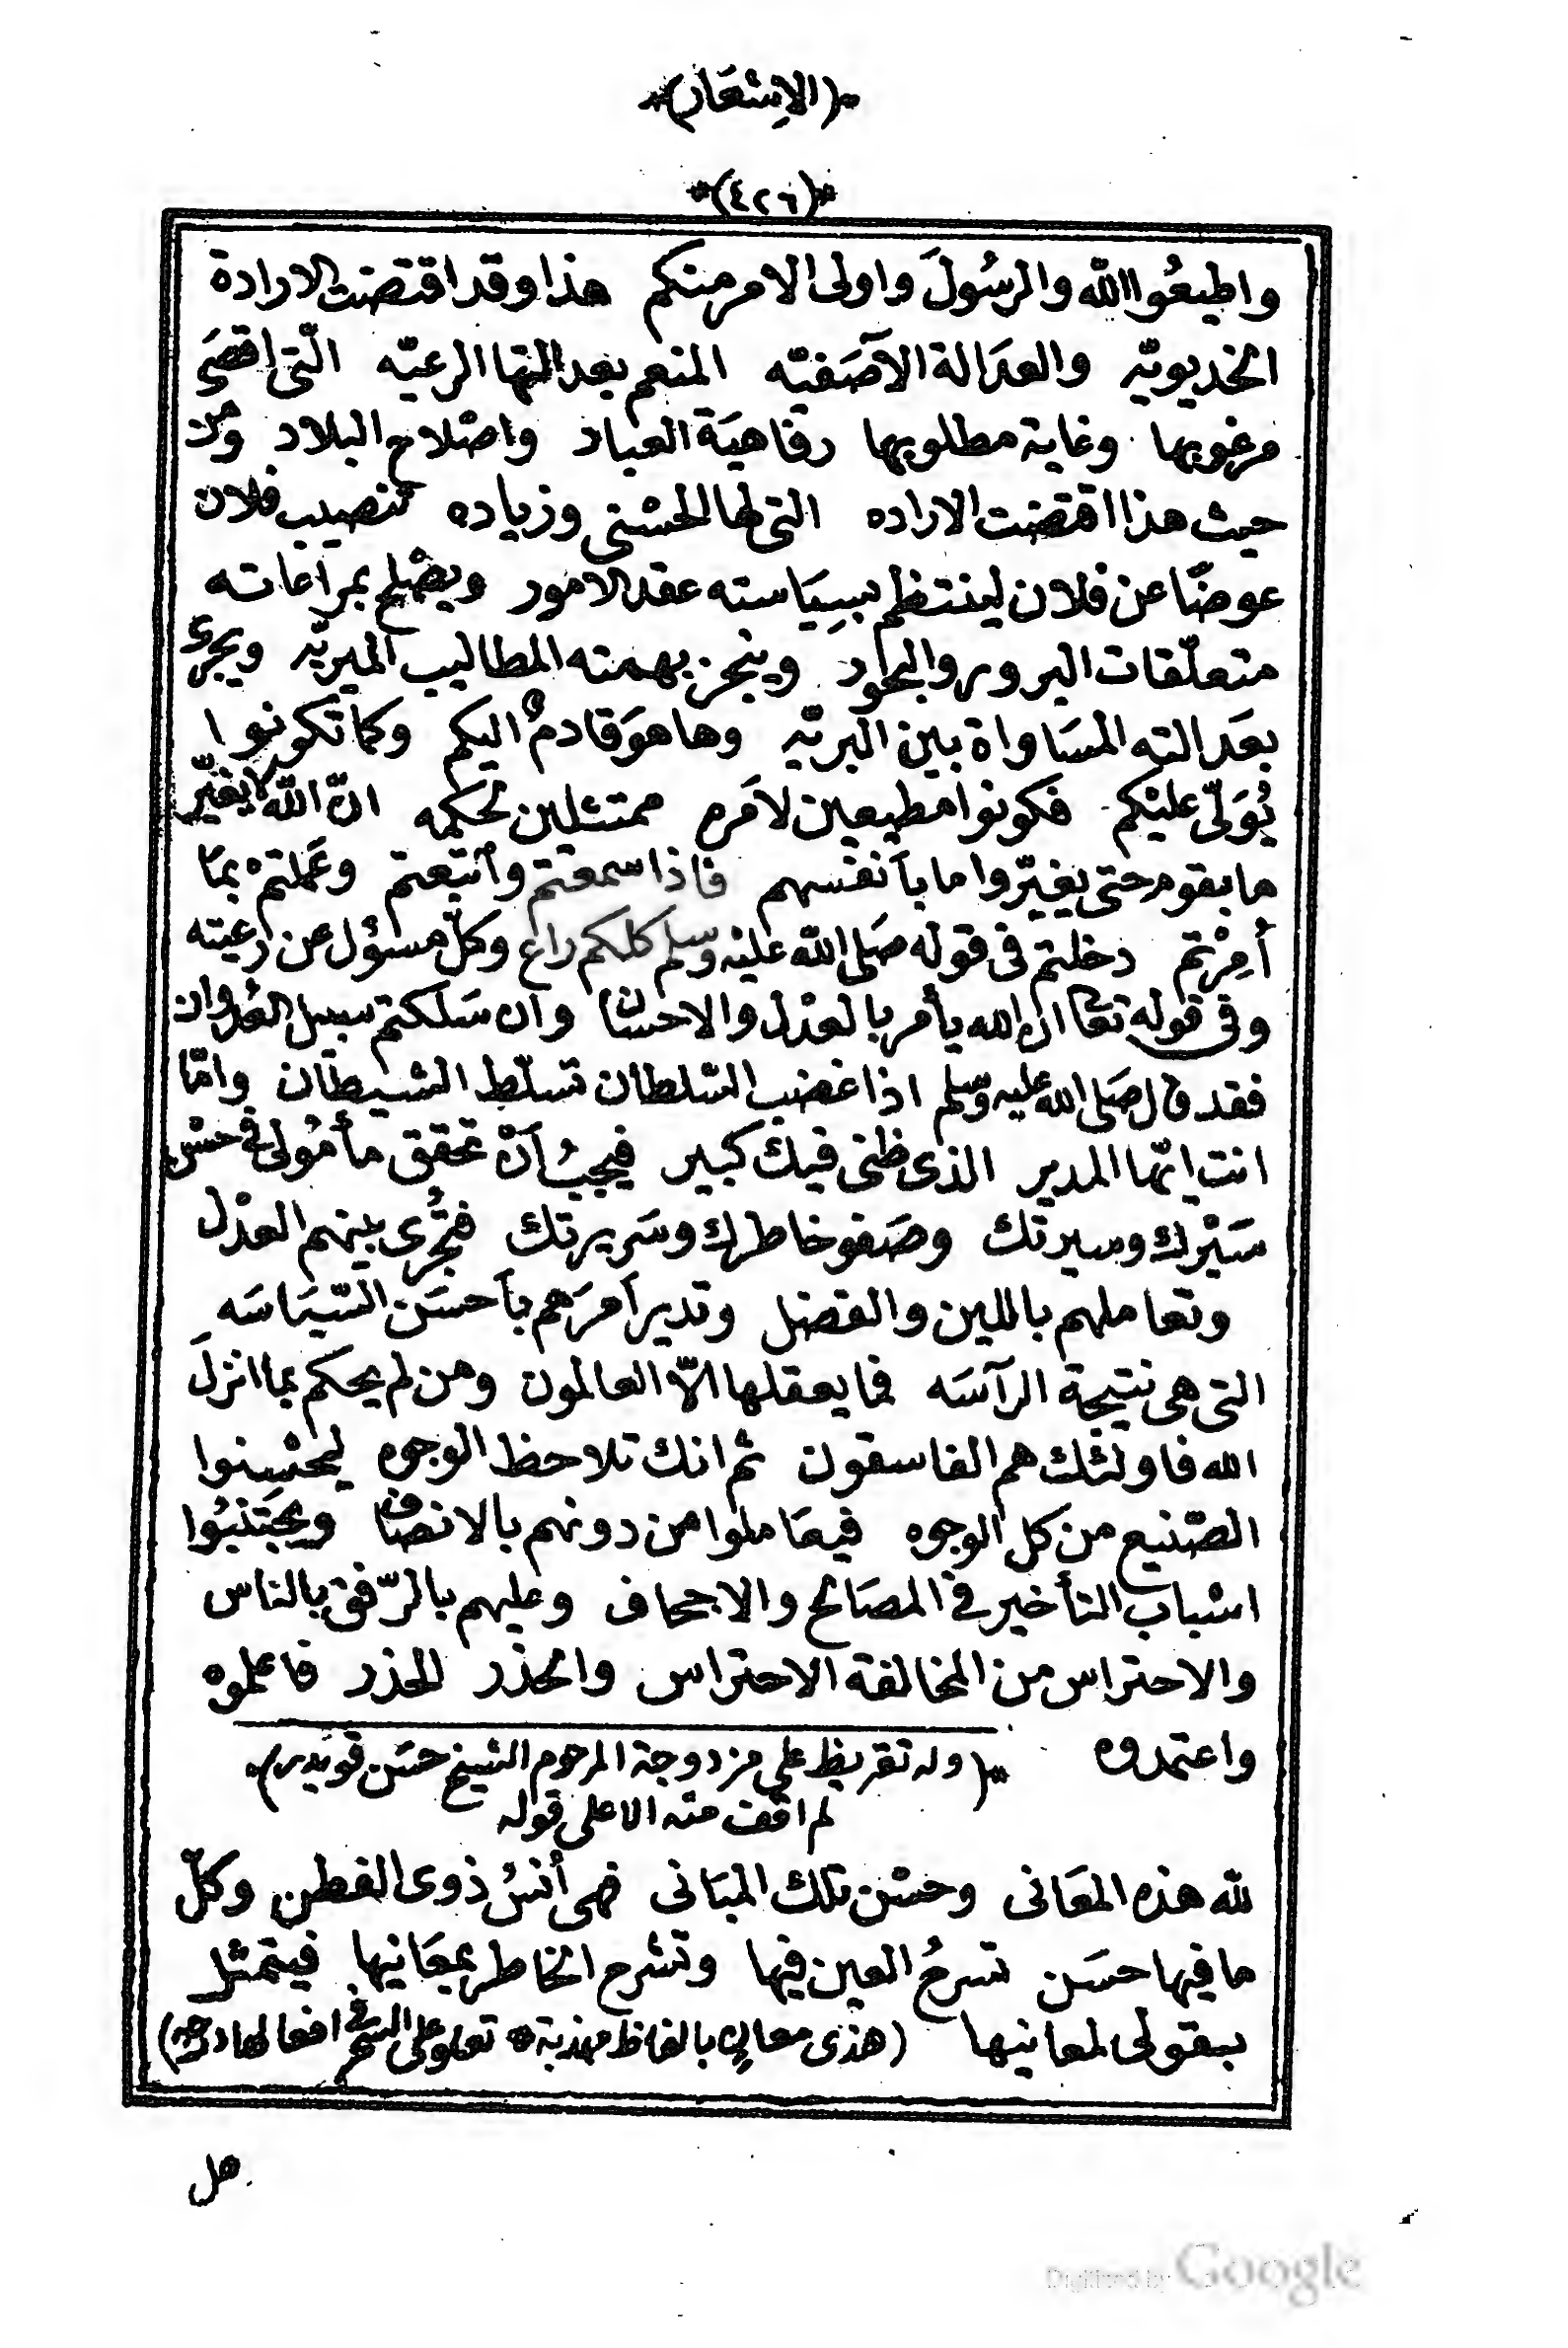 (الاِشعَار)
(٤٢٦)
واطيعُوا الله والرسُولَ واولى الامر منكم هذا وقد اقتضت الارادة
الخديويّه والعدَالة الآصَفيّه المنعم بعدالتها الرعيّه الّتى اقصَى
مرغوبها وغاية مطلوبها رفاهيَة العباد واصْلاح البلاد ومن
حيث هذا اقتضت الاراده التى لها الحسْنى وزياده تنصيب فلان
عوضًا عن فلان لينتظم بسِيَاسته عقد الامور ويصْلح بمراعاته
متعلّقات البرور والبحور وينجز بهمته المطاليب الميريّه ويجرى
بعَدالته المسَاواة بين البريّه وها هوَ قادمٌ اليكم وكما تكونوا
يُوَلّى عليْكم فكونوا مطيعين لامَره ممتثلين لحكمه انّ الله لا يغيّر
ما بقوم حتى يغيّروا ما بأنفسهم فاذا سمعتم وأتبعتم وعَملتمْ بمَا
أُمِرْتم دخلتم فى قوله صَلى الله عليْه وسلم كلكم راع وكلّ مسؤل عن رعيته
وفى قوله تعَا ان الله يأمر بالعدْل والاحسَان وان سَلكتم سبيل العُدوان
فقد قال صَلى الله عليه وسلم اذا غضب السّلطان تسلّط الشيطان وامّا
انت ايّها المدير الذى ظنى فيك كبير فيجبُ أنْ تحقق مأمُولى فى حسْن
سَيْرك وسيرتك وصَفو خاطرك وسَريرتك فتُجْرى بينهم العدْل
وتعاملهم باللين والفضل وتدير أمرَهم بأحسَن السّيَاسَه
التى هى نتيجة الرآسَه فما يعقلها الّا العالمون ومن لم يحكم بما انزلَ
الله فاولئك هم الفاسقون ثم انك تلاحظ الوجوه ليحْسِنوا
الصّنيع من كل الوجوه فيعَاملوا من دونهم بالانصَاف ويجَتنبُوا
اسْباب التأخير فى المصَالح والاجحاف وعليهم بالرّفق بالناس
والاحتراس من المخالفة الاحتراس والحذر الحذر فاعلموه
واعتمدوه (وله تقريظ على مزدوجة المرحوم الشيخ حسَن قويدر)
لم اقف منه الا على قوله
لله هذه المعَانى وحسْن تلك المبَانى فهى أنسُ ذوى الفطن وكلّ
ما فيها حسَن تسرحُ العين فيها وتشرح الخاطر بمعَانيها فيتمثل
بقولى لمعانيها (هذى معالٍ بالفاظ مهذبة تعلو على السحر فى افعالها درجه)
هل
Digitized by Google